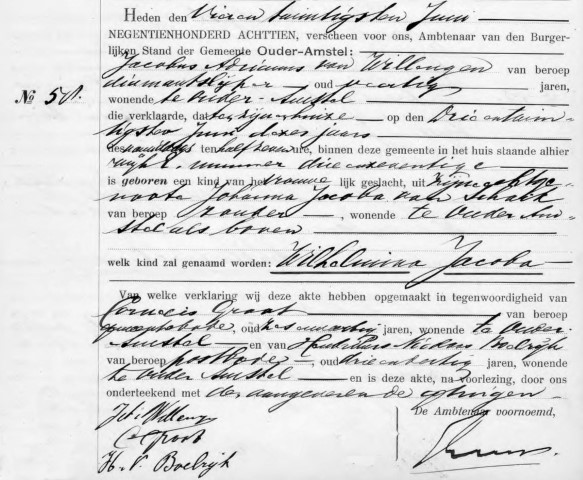 Heden den Vieren twintigsten Juni
NEGENTIENHONDERD ACHTTIEN, verscheen voor ons, Ambtenaar van den Burger-
lijken Stand der Gemeente Ouder-Amstel:
Jacobus Adrianus van Willengen van beroep
diamantslijper oud veertig jaren,
wonende te Ouder-Amstel
die verklaarde, dat te zijnen huize op den Drieentwin-
tigsten Juni dezer jaars
des namiddags ten half ure, binnen deze gemeente in het huis staande alhier
wijk nummer drieenzeventig
is geboren een kind van het vrouwe lijk geslacht, uit zijne echtge-
noote Johanna Jacoba van Schaik
van beroep zonder, wonende te Ouder Am-
stel als boven
welk kind zal genaamd worden: Wilhelmina Jacoba
Van welke verklaring wij deze akte hebben opgemaakt in tegenwoordigheid van
Cornelis Groot van beroep
gemeentebode, oud jaren, wonende te Ouder-
Amstel en van Nicolaas Boelrijk
van beroep postbode, oud drieendertig jaren, wonende
te Ouder Amstel en is deze akte, na voorlezing, door ons
onderteekend met den aangever en de getuigen
De Ambtenaar voornoemd,
No 58.
C Groot
H. N. Boelrijk